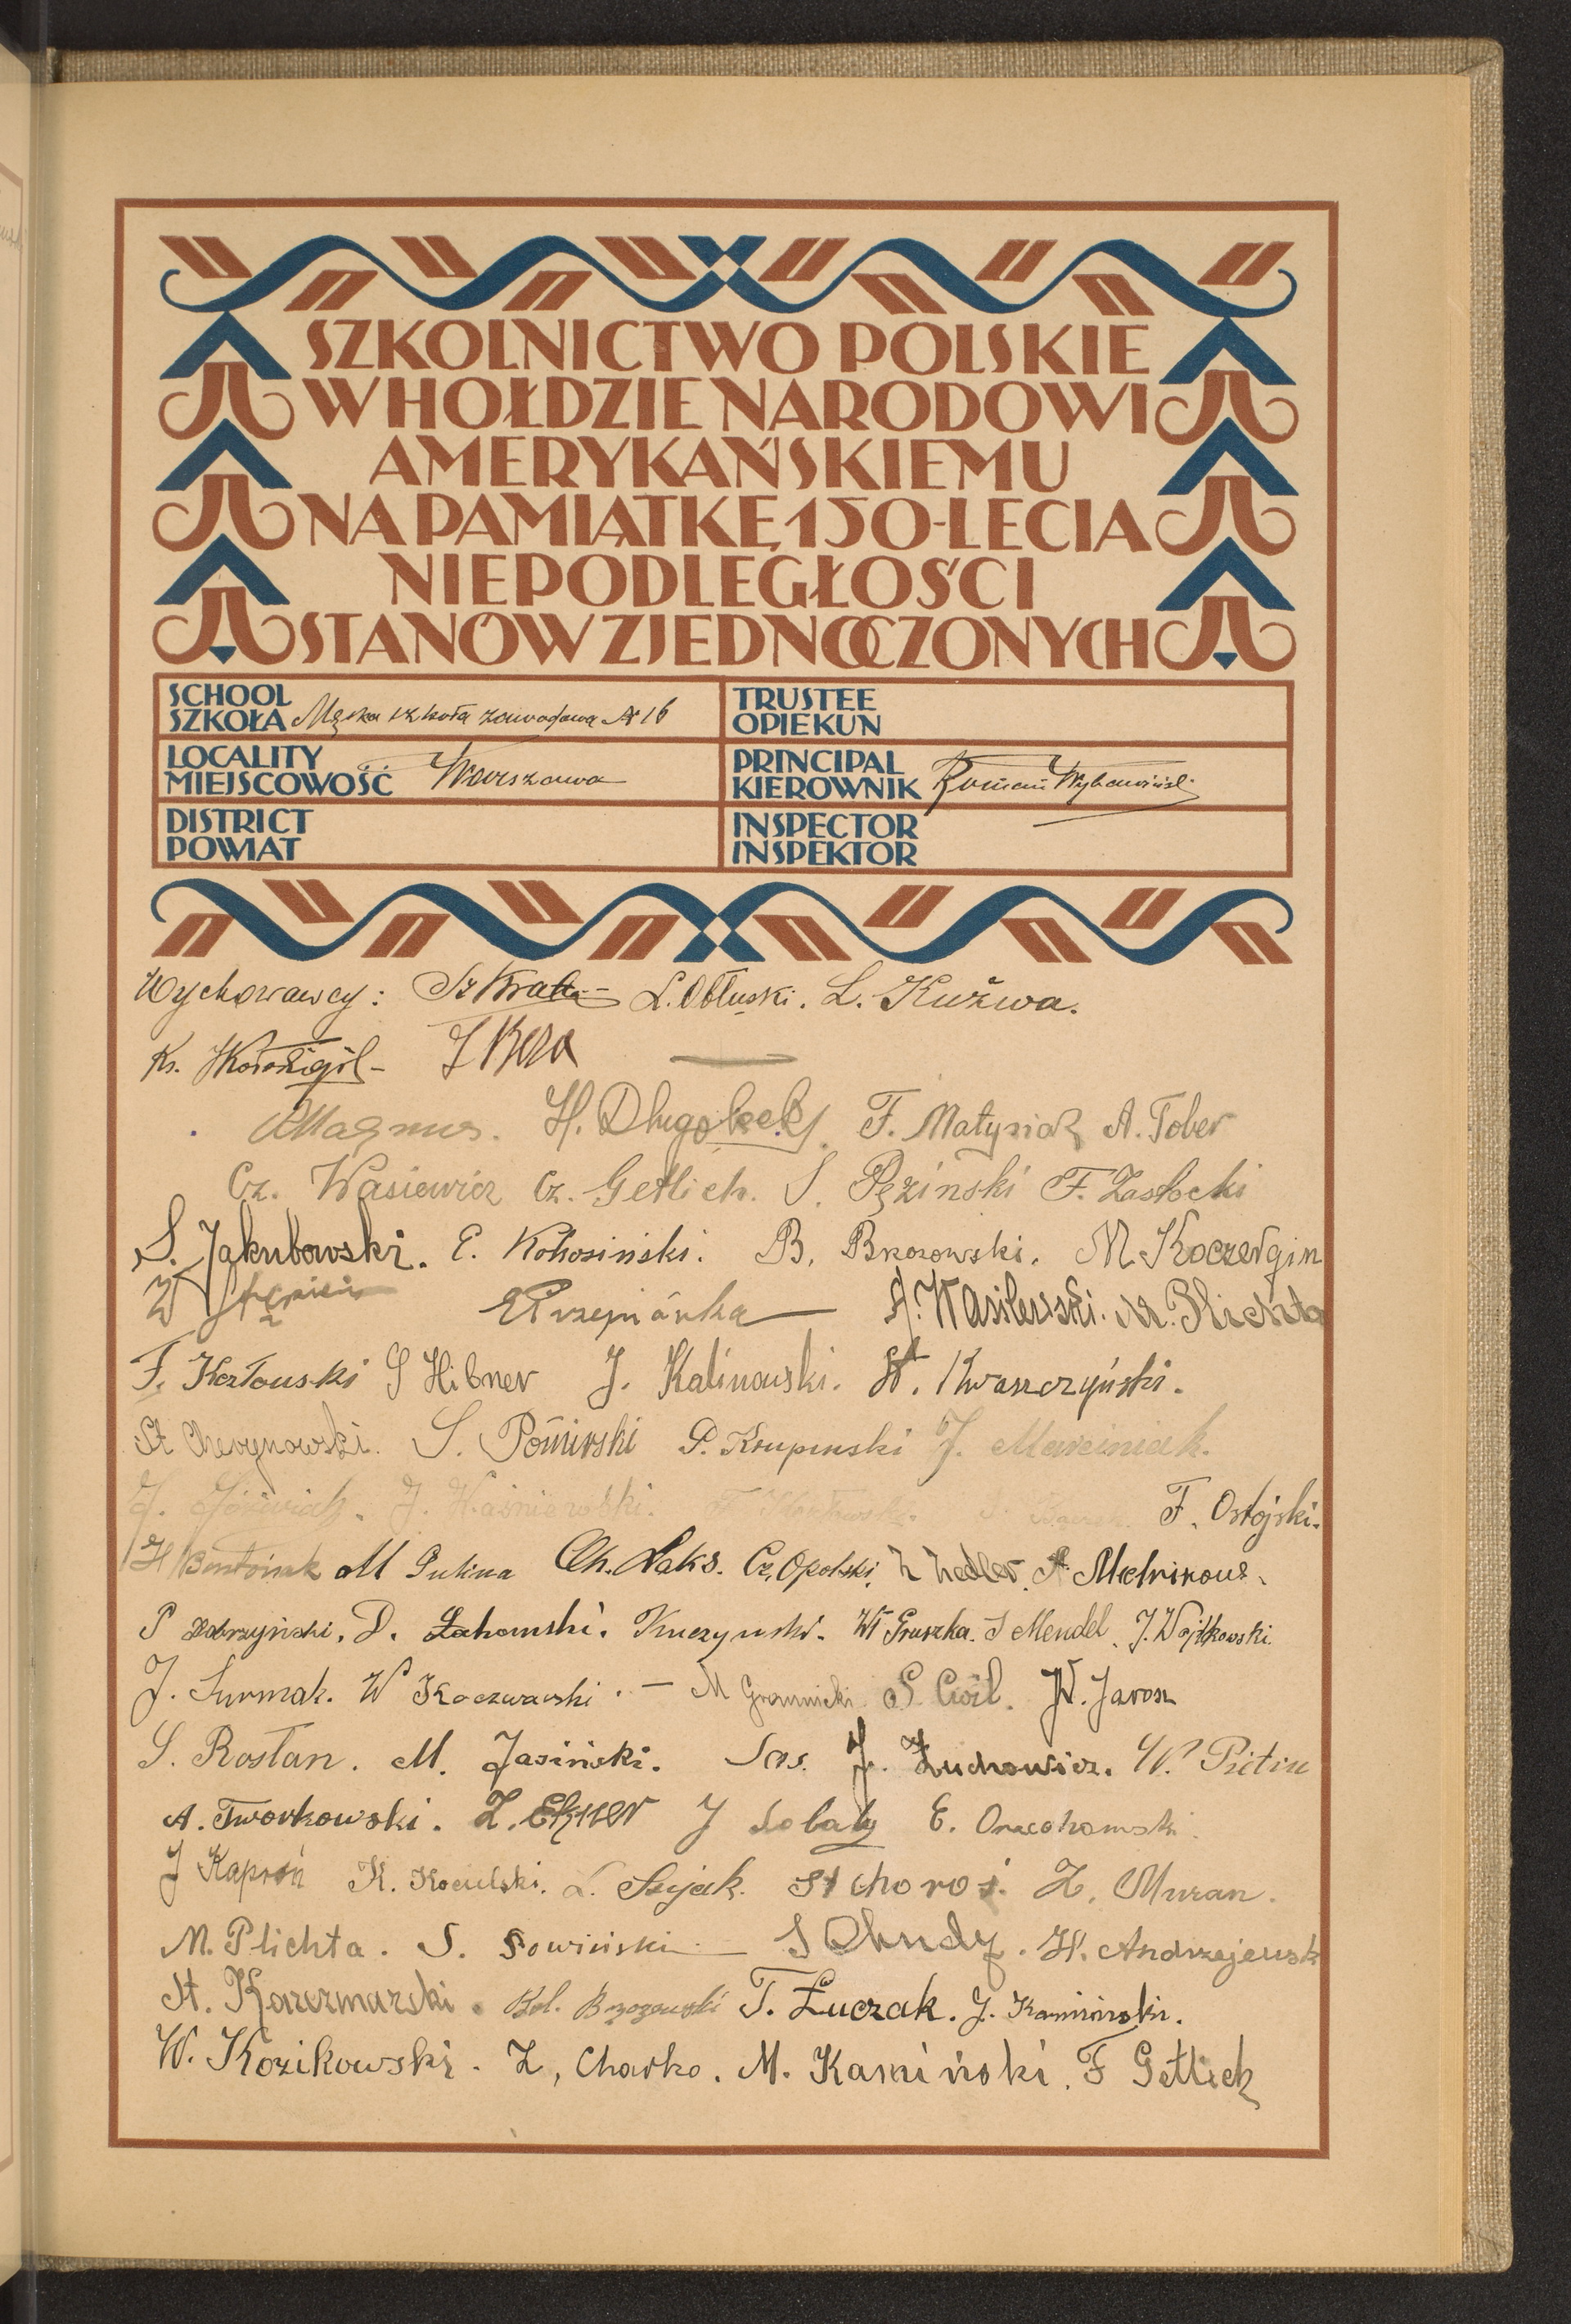 SZKOLNICTWO POLSKIE
W HOŁDZIE NARODOWI
AMERYKAŃSKIEMU
NA PAMIĄTKĘ 150-LECIA
NIEPODLEGŁOŚCI
STANÓW ZJEDNOCZONYCH
SCHOOL
SZKOŁA Męska szkoła zawodowa № 16
TRUSTEE
OPIEKUN
LOCALITY
MIEJSCOWOŚĆ Warszawa
PRINCIPAL
KIEROWNIK Roman
DISTRICT
POWIAT
INSPECTOR
INSPEKTOR
Wychowawcy: L. Obłuski. L. Kuźwa.
Ks.
Magnus. H. Długołęcki. F. Matysiak A. Tober
Cz. Wasiewicz Cz. Getlich. S. Pęzinski F. Zasłocki
S. Jakubowski. E. Kokosiński. B. Brzozowski. M. Koczergin
W Stępień A. Wasilewski. M. Plichta
F. Kozłouski S Hibner J. Kalinowski. W. Kwaszczyński.
St S. Pomirski P. Krupinski J. Marciniak.
J. Jóźwiak. J. Waśniewski. F. Ostojski.
H M Gulina Ch. Laks. Cz. Opolski. A. Melnikow.
P Dobrzyński. D. Łakomski. Kuczynski. Wł Gruszka. S Mendel. J. Wojtkowski.
J. Surmak. W Koczwarski. - M Gromnicki S. Cwil. W. Jarosz
S. Rostan. M. Jasiński. Sas. J. Żuchowicz. W.
A. Tworkowski. Z. Ekner J Sobaty E. Orzechowski.
J Kaproń K. Kociulski. L. Szyjak. St Choroś. Z. Muran.
M. Plichta. S. Sowiński S Chudy. H. Andrzejewsk
St. Kaczmarski. Bol. Brzozowski T. Łuczak. J. Kamiński.
W. Kozikowski. Z, Charko. M. Kamiński. F Getlich